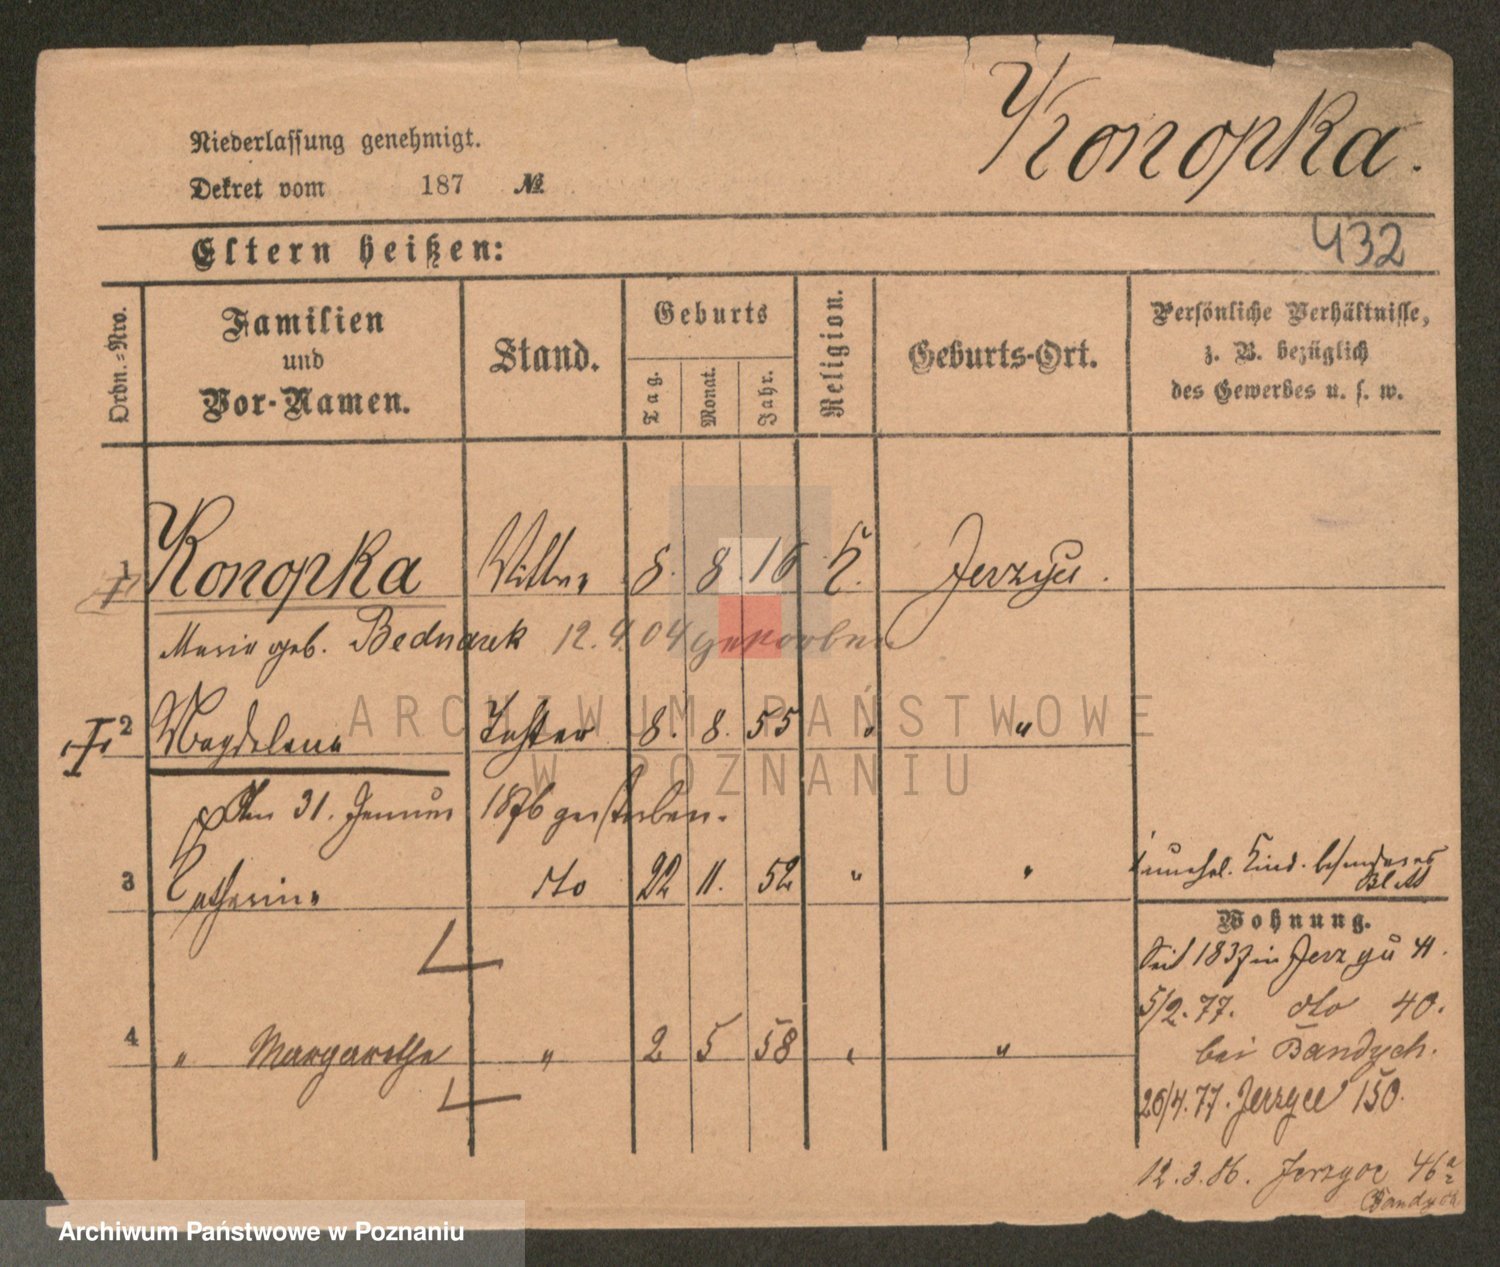 Konopka.
Niederlassung genehmigt.
Dekret vom 187 №
432
Eltern heißen:
Ordn.-Nro.
Familien
und
Vor-Namen.
Stand.
Geburts
Tag.
Monat.
Jahr.
Religion.
Geburts-Ort.
Persönliche Verhältnisse,
z. B. bezüglich
des Gewerbes u. s. w.
1 Konopka 8. 8. 16 K. Jerzyce.
Marie geb. Bednarek 12.4.04 gestorben
2 Magdalena Tochter 8. 8. 55 " "
Am 31. Januar 1876 gestorben.
3 Catharina dto 22 11. 52 " "
1 unehel. Kind. besonderes
Blatt
Wohnung.
Seit 1837 in Jerzyce 41.
5/2. 77. dto 40.
4 " Margarethe " 2 5 58 " "
bei Bandych.
26/4. 77. Jerzyce 150.
12.3.86. Jerzyce 46a
Bandych
ARCHIWUM PAŃSTWOWE
W POZNANIU
Archiwum Państwowe w Poznaniu